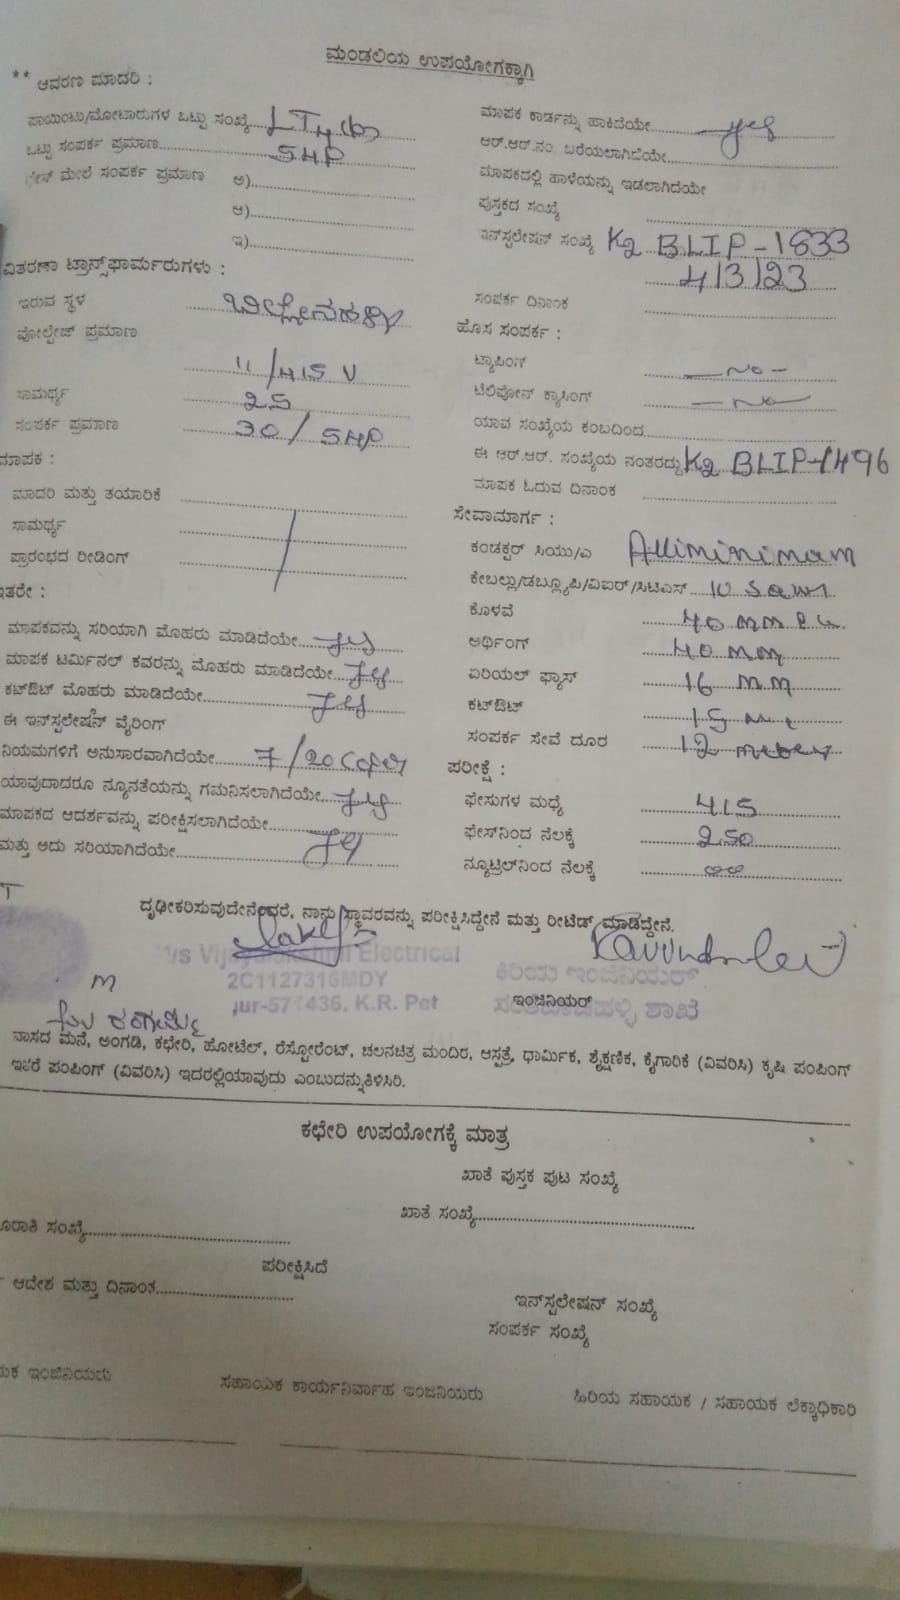 ಮಂಡಲಿಯ ಉಪಯೋಗಕ್ಕಾಗಿ
** ಆವರಣ ಮಾದರಿ :
ಪಾಯಿಂಟು/ಮೋಟಾರುಗಳ ಒಟ್ಟು ಸಂಖ್ಯೆ LT4(b)
ಒಟ್ಟು ಸಂಪರ್ಕ ಪ್ರಮಾಣ 5HP
ಮೇಲೆ ಸಂಪರ್ಕ ಪ್ರಮಾಣ ಅ)
ಆ)
ಇ)
ವಿತರಣಾ ಟ್ರಾನ್ಸ್‌ಫಾರ್ಮರುಗಳು :
ಇರುವ ಸ್ಥಳ
ವೋಲ್ಟೇಜ್ ಪ್ರಮಾಣ
11/415 V
ಸಾಮರ್ಥ್ಯ 25
ಸಂಪರ್ಕ ಪ್ರಮಾಣ 30/5HP
ಮಾಪಕ :
ಮಾದರಿ ಮತ್ತು ತಯಾರಿಕೆ
ಸಾಮರ್ಥ್ಯ
ಪ್ರಾರಂಭದ ರೀಡಿಂಗ್
ಇತರೇ :
ಮಾಪಕವನ್ನು ಸರಿಯಾಗಿ ಮೊಹರು ಮಾಡಿದೆಯೇ
ಮಾಪಕ ಟರ್ಮಿನಲ್ ಕವರನ್ನು ಮೊಹರು ಮಾಡಿದೆಯೇ
ಕಟ್‌ಔಟ್ ಮೊಹರು ಮಾಡಿದೆಯೇ
ಈ ಇನ್‌ಸ್ಪಲೇಷನ್ ವೈರಿಂಗ್
ನಿಯಮಗಳಿಗೆ ಅನುಸಾರವಾಗಿದೆಯೇ 7/20
ಯಾವುದಾದರೂ ನ್ಯೂನತೆಯನ್ನು ಗಮನಿಸಲಾಗಿದೆಯೇ
ಮಾಪಕದ ಆದರ್ಶವನ್ನು ಪರೀಕ್ಷಿಸಲಾಗಿದೆಯೇ
ಮತ್ತು ಅದು ಸರಿಯಾಗಿದೆಯೇ
ಮಾಪಕ ಕಾರ್ಡನ್ನು ಹಾಕಿದೆಯೇ yes
ಆರ್.ಆರ್.ನಂ. ಬರೆಯಲಾಗಿದೆಯೇ
ಮಾಪಕದಲ್ಲಿ ಹಾಳೆಯನ್ನು ಇಡಲಾಗಿದೆಯೇ
ಪುಸ್ತಕದ ಸಂಖ್ಯೆ
ಇನ್‌ಸ್ಪಲೇಷನ್ ಸಂಖ್ಯೆ K2 BLIP-1633
4/3/23
ಸಂಪರ್ಕ ದಿನಾಂಕ
ಹೊಸ ಸಂಪರ್ಕ :
ಟ್ಯಾಪಿಂಗ್ -No-
ಟೆಲಿಫೋನ್ ಕ್ಯಾಸಿಂಗ್ -No-
ಯಾವ ಸಂಖ್ಯೆಯ ಕಂಬದಿಂದ
ಈ ಆರ್.ಆರ್. ಸಂಖ್ಯೆಯ ನಂತರದ್ದು K2 BLIP-1496
ಮಾಪಕ ಓದುವ ದಿನಾಂಕ
ಸೇವಾಮಾರ್ಗ :
ಕಂಡಕ್ಟರ್ ಸಿಯು/ಎ Alliminimam
ಕೇಬಲ್ಲು/ಡಬ್ಲ್ಯೂಪಿ/ವಿಐರ್/ಸಿಟಿಎಸ್ 10
ಕೊಳವೆ 40 mm
ಅರ್ಥಿಂಗ್ 40 mm
ಏರಿಯಲ್ ಫ್ಯೂಸ್ 16 mm
ಕಟ್‌ಔಟ್ 15
ಸಂಪರ್ಕ ಸೇವೆ ದೂರ 12
ಪರೀಕ್ಷೆ :
ಫೇಸುಗಳ ಮಧ್ಯೆ 415
ಫೇಸ್‌ನಿಂದ ನೆಲಕ್ಕೆ 250
ನ್ಯೂಟ್ರಲ್‌ನಿಂದ ನೆಲಕ್ಕೆ
ದೃಢೀಕರಿಸುವುದೇನೇಂದರೆ, ನಾನು ಸ್ಥಾವರವನ್ನು ಪರೀಕ್ಷಿಸಿದ್ದೇನೆ ಮತ್ತು ರೀಟೆಡ್ ಮಾಡಿದ್ದೇನೆ.
Electrical
2C1127316MDY
436, K.R. Pet
ಕಿರಿಯ ಇಂಜಿನಿಯರ್
ಇಂಜಿನಿಯರ್
ಶಾಖೆ
ವಾಸದ ಮನೆ, ಅಂಗಡಿ, ಕಛೇರಿ, ಹೋಟೆಲ್, ರೆಸ್ಟೋರೆಂಟ್, ಚಲನಚಿತ್ರ ಮಂದಿರ, ಆಸ್ಪತ್ರೆ, ಧಾರ್ಮಿಕ, ಶೈಕ್ಷಣಿಕ, ಕೈಗಾರಿಕೆ (ವಿವರಿಸಿ) ಕೃಷಿ ಪಂಪಿಂಗ್
ಇತರೆ ಪಂಪಿಂಗ್ (ವಿವರಿಸಿ) ಇದರಲ್ಲಿಯಾವುದು ಎಂಬುದನ್ನುತಿಳಿಸಿರಿ.
ಕಛೇರಿ ಉಪಯೋಗಕ್ಕೆ ಮಾತ್ರ
ಖಾತೆ ಪುಸ್ತಕ ಪುಟ ಸಂಖ್ಯೆ
ಖಾತೆ ಸಂಖ್ಯೆ
ಸಂಖ್ಯೆ
ಪರೀಕ್ಷಿಸಿದೆ
ಆದೇಶ ಮತ್ತು ದಿನಾಂಕ
ಇನ್‌ಸ್ಪಲೇಷನ್ ಸಂಖ್ಯೆ
ಸಂಪರ್ಕ ಸಂಖ್ಯೆ
ಇಂಜಿನಿಯರು
ಸಹಾಯಕ ಕಾರ್ಯನಿರ್ವಾಹ ಇಂಜಿನಿಯರು
ಹಿರಿಯ ಸಹಾಯಕ / ಸಹಾಯಕ ಲೆಕ್ಕಾಧಿಕಾರಿ